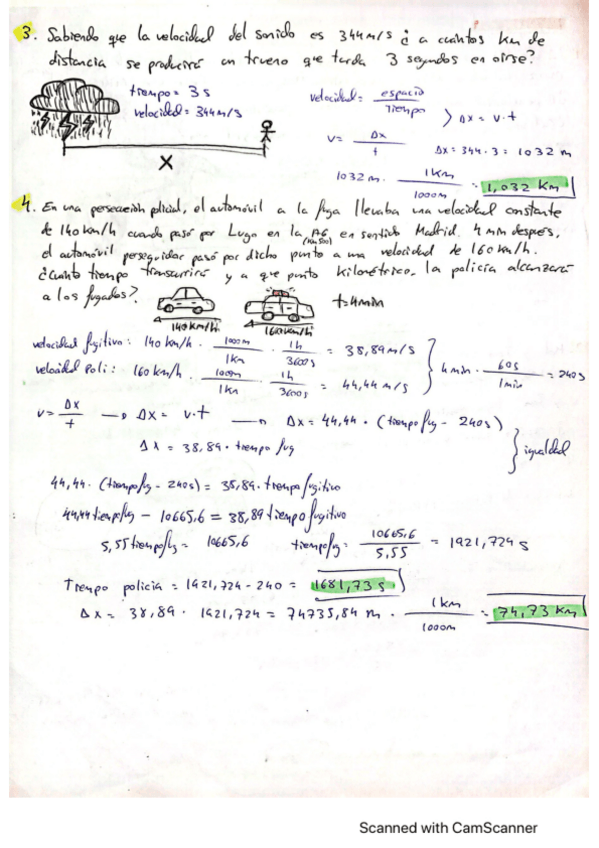 3. Sabiendo que la velocidad del sonido es 344 m/s ¿a cuántos Km de
distancia se producirá un trueno que tarda 3 segundos en oirse?
tiempo = 3 s
velocidad = 344 m/s
X
velocidad = espacio / Tiempo
Δx = v·t
v = Δx / t
Δx = 344 · 3 = 1032 m
1032 m · 1 Km / 1000 m = 1,032 Km
4. En una persecución policial, el automóvil a la fuga llevaba una velocidad constante
de 140 km/h cuando pasó por Lugo en la A6 (Km 500) en sentido Madrid. 4 min después,
el automóvil perseguidor pasó por dicho punto a una velocidad de 160 km/h.
¿Cuánto tiempo transcurrirá y a que punto kilométrico, la policía alcanzará
a los fugados?
140 km/h
160 Km/h
t = 4 min
velocidad fugitivo: 140 km/h · 1000m / 1 Km · 1 h / 3600 s = 38,89 m/s
velocidad Poli: 160 km/h · 1000m / 1 Km · 1 h / 3600 s = 44,44 m/s
4 min · 60 s / 1 min = 240 s
v = Δx / t → Δx = v·t → Δx = 44,44 · (tiempo fug - 240 s)
Δx = 38,89 · tiempo fug
igualdad
44,44 · (tiempo fug - 240 s) = 38,89 · tiempo fugitivo
44,44 tiempo fug - 10665,6 = 38,89 tiempo fugitivo
5,55 tiempo fug = 10665,6 tiempo fug = 10665,6 / 5,55 = 1921,724 s
Tiempo policía = 1921,724 - 240 = 1681,73 s
Δx = 38,89 · 1921,724 = 74735,84 m · 1 Km / 1000 m = 74,73 Km
Scanned with CamScanner